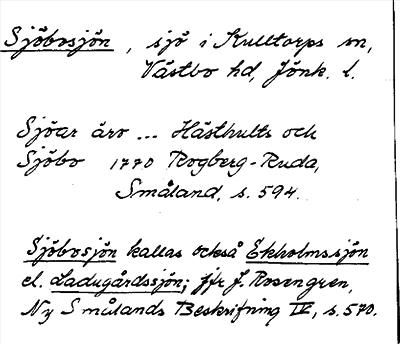 Sjöbosjön, sjö i Kulltorps sn,
Västbo hd, Jönk. l.
Sjöar äro ... Hästhults och
Sjöbo 1770 Rogberg-Ruda,
Småland, s. 594.
Sjöbosjön kallas också Ekholmssjön
el. Ladugårdssjön; jfr J. Rosengren,
Ny Smålands Beskrifning IV, s. 570.